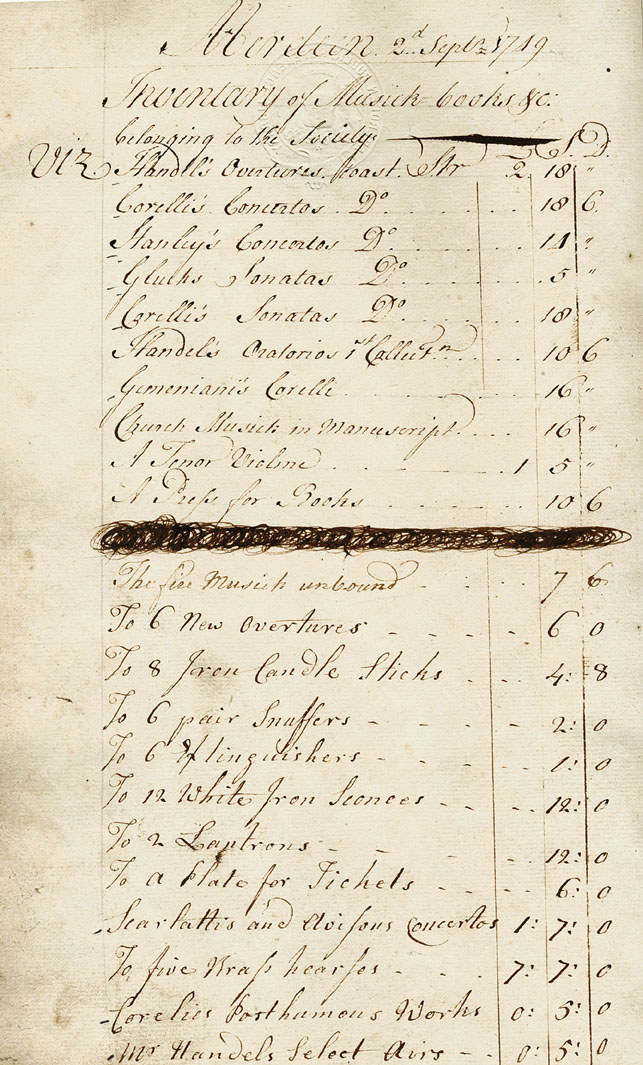 Aberdeen 2d Septr 1749
Inventary of Musick books &c:
belonging to the Society £ S. D.
Viz Handel's Overtures, 2 18 "
Corelli's Concertos Do 18 6
Stanley's Concertos Do 14 "
Glucks Sonatas Do 5 "
Corelli's Sonatas Do 18 "
Handel's Oratorios 1st Collectn 10 6
Gemeniani's Corelli 16 "
Church Musick in Manuscript 16 "
A Tenor Violine 1 5 "
A Press for Books 10 6
Musick unbound 7 6
To 6 New Overtures 6 0
To 8 Iron Candle Sticks 4: 8
To 6 pair Snuffers 2: 0
To 6 1: 0
To 12 White Iron Sconces 12: 0
To 2 Lantrons 12: 0
To a Plate for Tickets 6: 0
Scarlattis and Avisons Concertos 1: 7: 0
To five Brass hearses 7: 7: 0
Corelies Posthumous Works 0: 5: 0
Mr Handels Select Airs 0: 5: 0